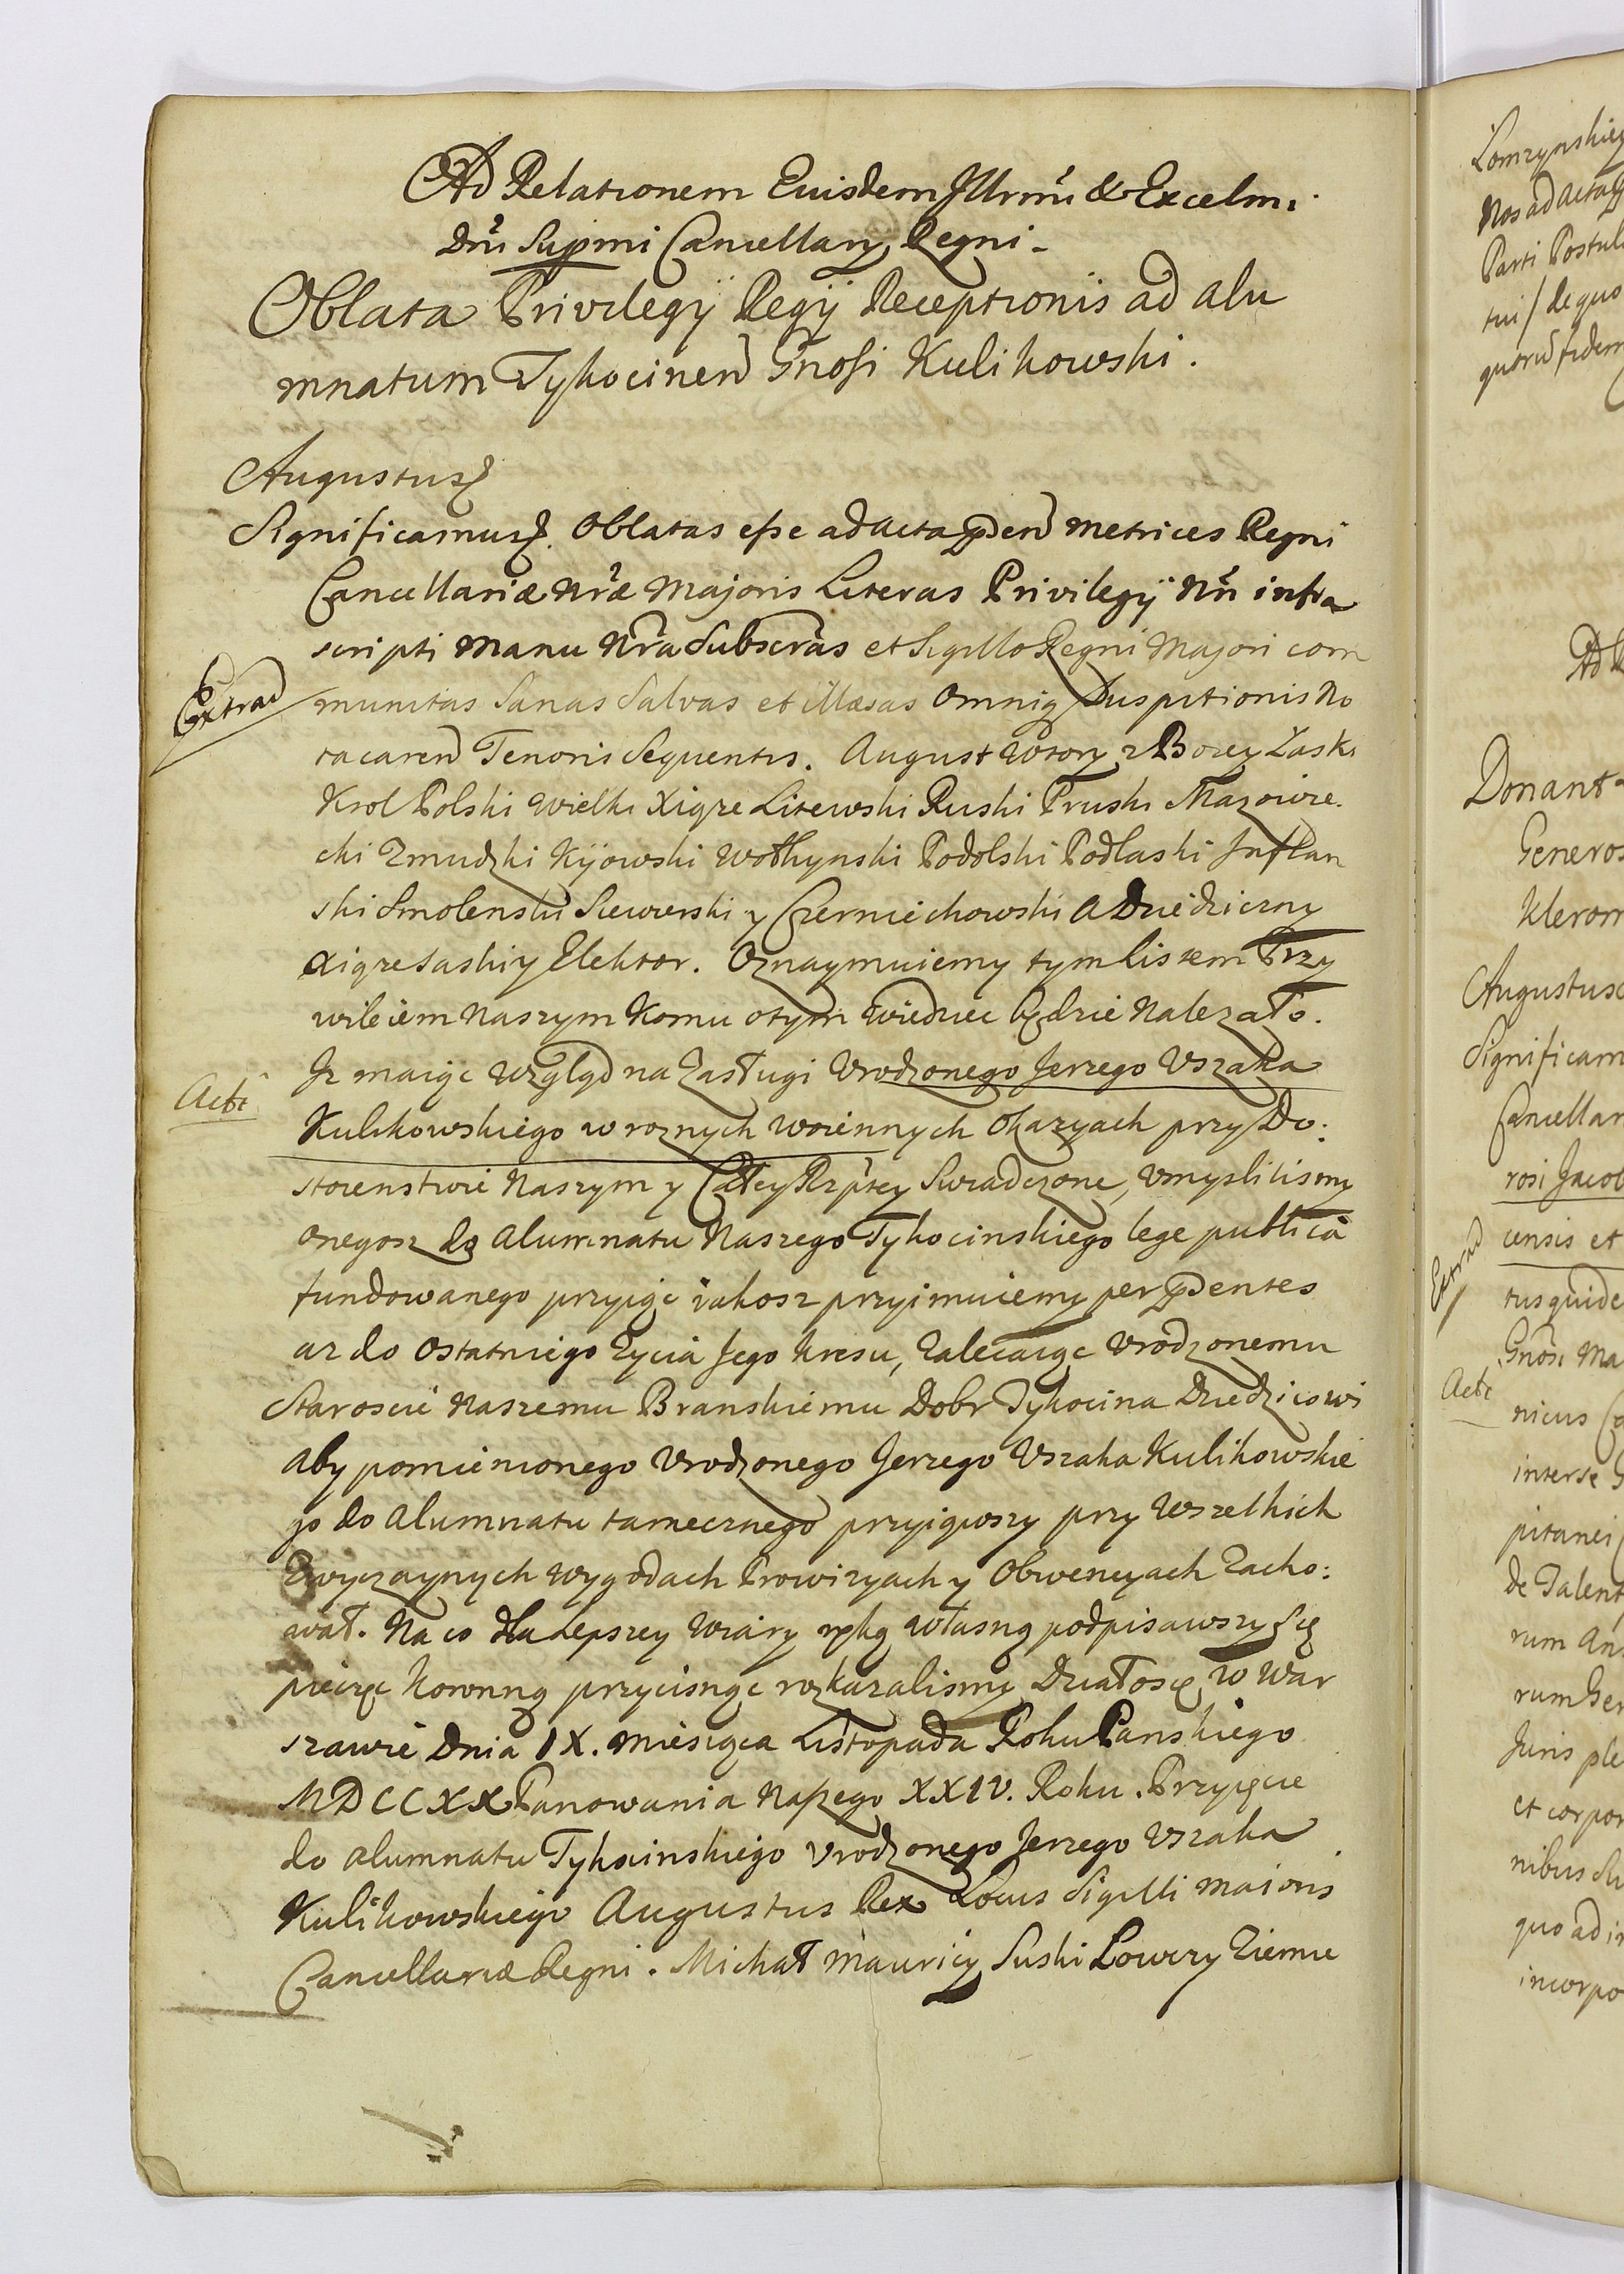 Ad Relationem Euisdem Illrmi & Excelmi
Dni Supmi Cancellarij Regni -
Oblata Privilegÿ Regÿ Receptionis ad alu
mnatum Tykocinen Gnosi Kulikowski.
Augustus
Significamus. Oblatas esse ad acta pden metrices Regni
Cancellariæ nræ majoris Literas Privilegÿ nri infra
scripti manu nra Subscras et Sigillo Regni Majori com
Extrad
munitas Sanas Salvas et illæsas omniq Suspitionis no
ta caren Tenoris Sequentis. August wtory z Bozey Łaski
Krol Polski wielki Xiąze Litewski Ruski Pruski Mazowie
cki Zmudzki Kijowski wołhynski Podolski Podlaski Inflan
ski Smolenski Siewierski y Czerniechowski a Dziedziczny
Xiąze Saski y Elektor. Oznaymuiemy tym listem Przy
wileiem naszym Komu o tym wiedziec będzie nalezało.
Iz maiąc wzgląd na Zasługi Vrodzonego Jerzego Vszaka
Acte
Kulikowskiego w roznych woiennych okazyach przy Do:
stoienstwie naszym y Całey Rzptey Swiadczone, vmyslilismy
onegosz do alumnatu Naszego Tykocinskiego lege publica
fundowanego przyiąc iakosz przyimuiemy per pdentes
az do ostatniego Zycia Jego kresu, Zalecaiąc vrodzonemu
Staroscie naszemu Branskiemu Dobr Tykocina Dziedzicowi
aby pomienionego Vrodzonego Jerzego Vszaka Kulikowskie
go do alumnatu tamecznego przyiąwszy przy wszelkich
Zwyczaynych wygodach Prowizyach y Obwencyach Zacho:
wał. Na co dla Lepszey wiary ręką własną podpisawszy się
pieczęc koronną przycisnąc rozkazalismy Działo się w War
szawie Dnia IX. miesiąca Listopada Roku Panskiego
MDCCXX Panowania naszego XXIV. Roku. Przyięcie
do alumnatu Tykocinskiego vrodzonego Jerzego Vszaka
Kulikowskiego Augustus Rex Locus Sigilli maioris
Cancellariæ Regni. Michał Mauricy Suski Lowczy Ziemie
Nos ad acta
Parti Postul
tui / de quo
Donant
Generos
Augustus
Significam
Cancellar
rosi Jacob
censis et
Extrad
tus quide
Gnosi Ma
Acte
nicus
inter se
pitanei
de Talent
rum
rum Ger
Juris ple
et corpor
nibus
quo ad in
incorpo